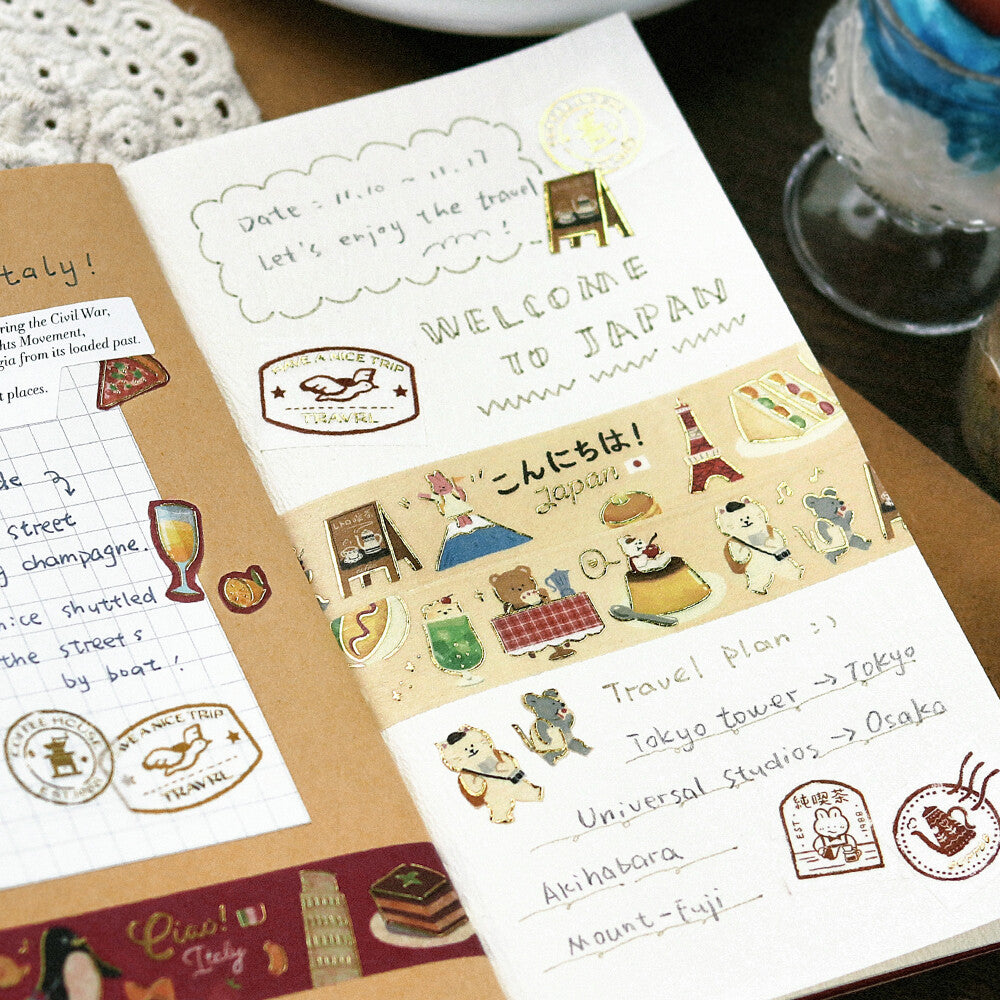 taly!
ring the Civil War,
hts Movement,
gia from its loaded past.
t places.
de
street
g champagne.
nice shuttled
the streets
by boat!
COFFEE HOUSE
BE A NICE TRIP
TRAVRL
Ciao!
Italy
Date: 11.10 ~ 11.17
Let's enjoy the travel
!
WELCOME
TO JAPAN
HAVE A NICE TRIP
TRAVRL
こんにちは!
Japan
Travel plan :)
Tokyo tower → Tokyo
Universal studios → Osaka
Akihabara
Mount-Fuji
純喫茶
EST 1988